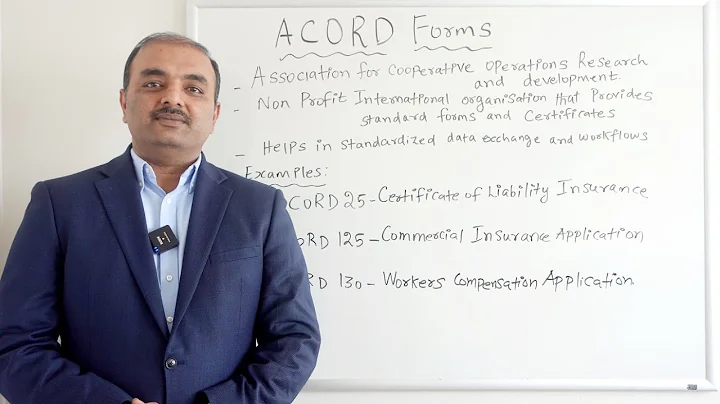 ACORD Forms
- Association for Cooperative Operations Research
and development.
- Non Profit International organisation that Provides
standard forms and Certificates
- Helps in standardized data exchange and workflows
Examples:
CORD 25 - Certificate of Liability Insurance
ORD 125 - Commercial Insurance Application
RD 130 - Workers Compensation Application